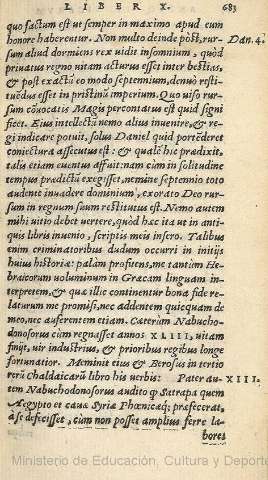 LIBER X. 683
quo factum est ut semper in maximo apud eum
honore haberentur. Non multo deinde pòst, rur- Dan. 4.
sum aliud dormiens rex uidit insomnium, quòd
priuatus regno uitam acturus esset inter bestias,
& post exactũ eo modo septennium, denuò resti-
tuẽdus esset in pristinũ imperium. Quo uiso rur-
sum cõuocatis Magis percontatus est quid signi
ficet. Eius intellectũ nemo alius inuenire, & re-
gi indicare potuit, solus Daniel quid portẽderet
coniectura assecutus est: & qualẽ hic prædixit,
talis etiam euentus affuit: nam cùm in solitudine
tempus prædictũ exegisset, nemine septennio toto
audente inuadere dominium, exorato Deo rur-
sum in regnum suum restitutus est. Nemo autem
mihi uitio debet uertere, quòd hæc ita ut in anti-
quis libris inuenio, scriptis meis insero. Talibus
enim criminatoribus dudum occurri in initijs
huius historiæ: palàm professus, me tantùm He-
braicorum uoluminum in Græcam linguam in-
terpretem, & quæ illic continentur bona fide re-
laturum me promisi, nec addentem quicquam de
meo, nec auferentem etiam. Cæterùm Nabucho-
donosorus cùm regnasset annos XLIII, uitam
finijt, uir industrius, & prioribus regibus longe
fortunatior. Meminit eius & Berosus in tertio
rerũ Chaldaicarũ libro his uerbis: Pater au- XIII.
tem Nabuchodonosorus audito quòd Satrapa quem
Aegypto et cauæ Syriæ Phœnicæque præfecerat,
à se defecisset, cùm non posset amplius ferre la-
bores
Ministerio de Educación, Cultura y Deporte